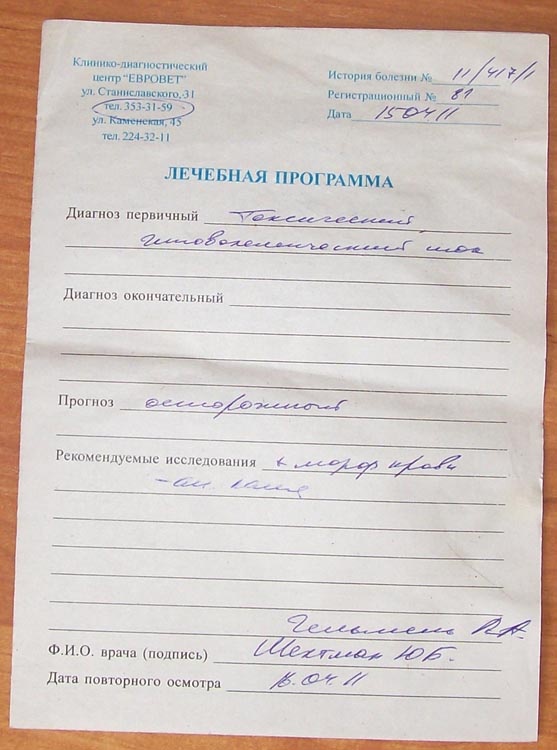 Клинико-диагностический
центр "ЕВРОВЕТ"
ул. Станиславского, 31
тел. 353-31-59
ул. Каменская, 45
тел. 224-32-11
История болезни № 11/417/1
Регистрационный № 81
Дата 150411
ЛЕЧЕБНАЯ ПРОГРАММА
Диагноз первичный Токсический,
гиповолемический шок
Диагноз окончательный
Прогноз осторожный
Рекомендуемые исследования + морф крови
- ан. кала
Гельмень
Ф.И.О. врача (подпись) Шехтман Ю.Б.
Дата повторного осмотра 16.04.11